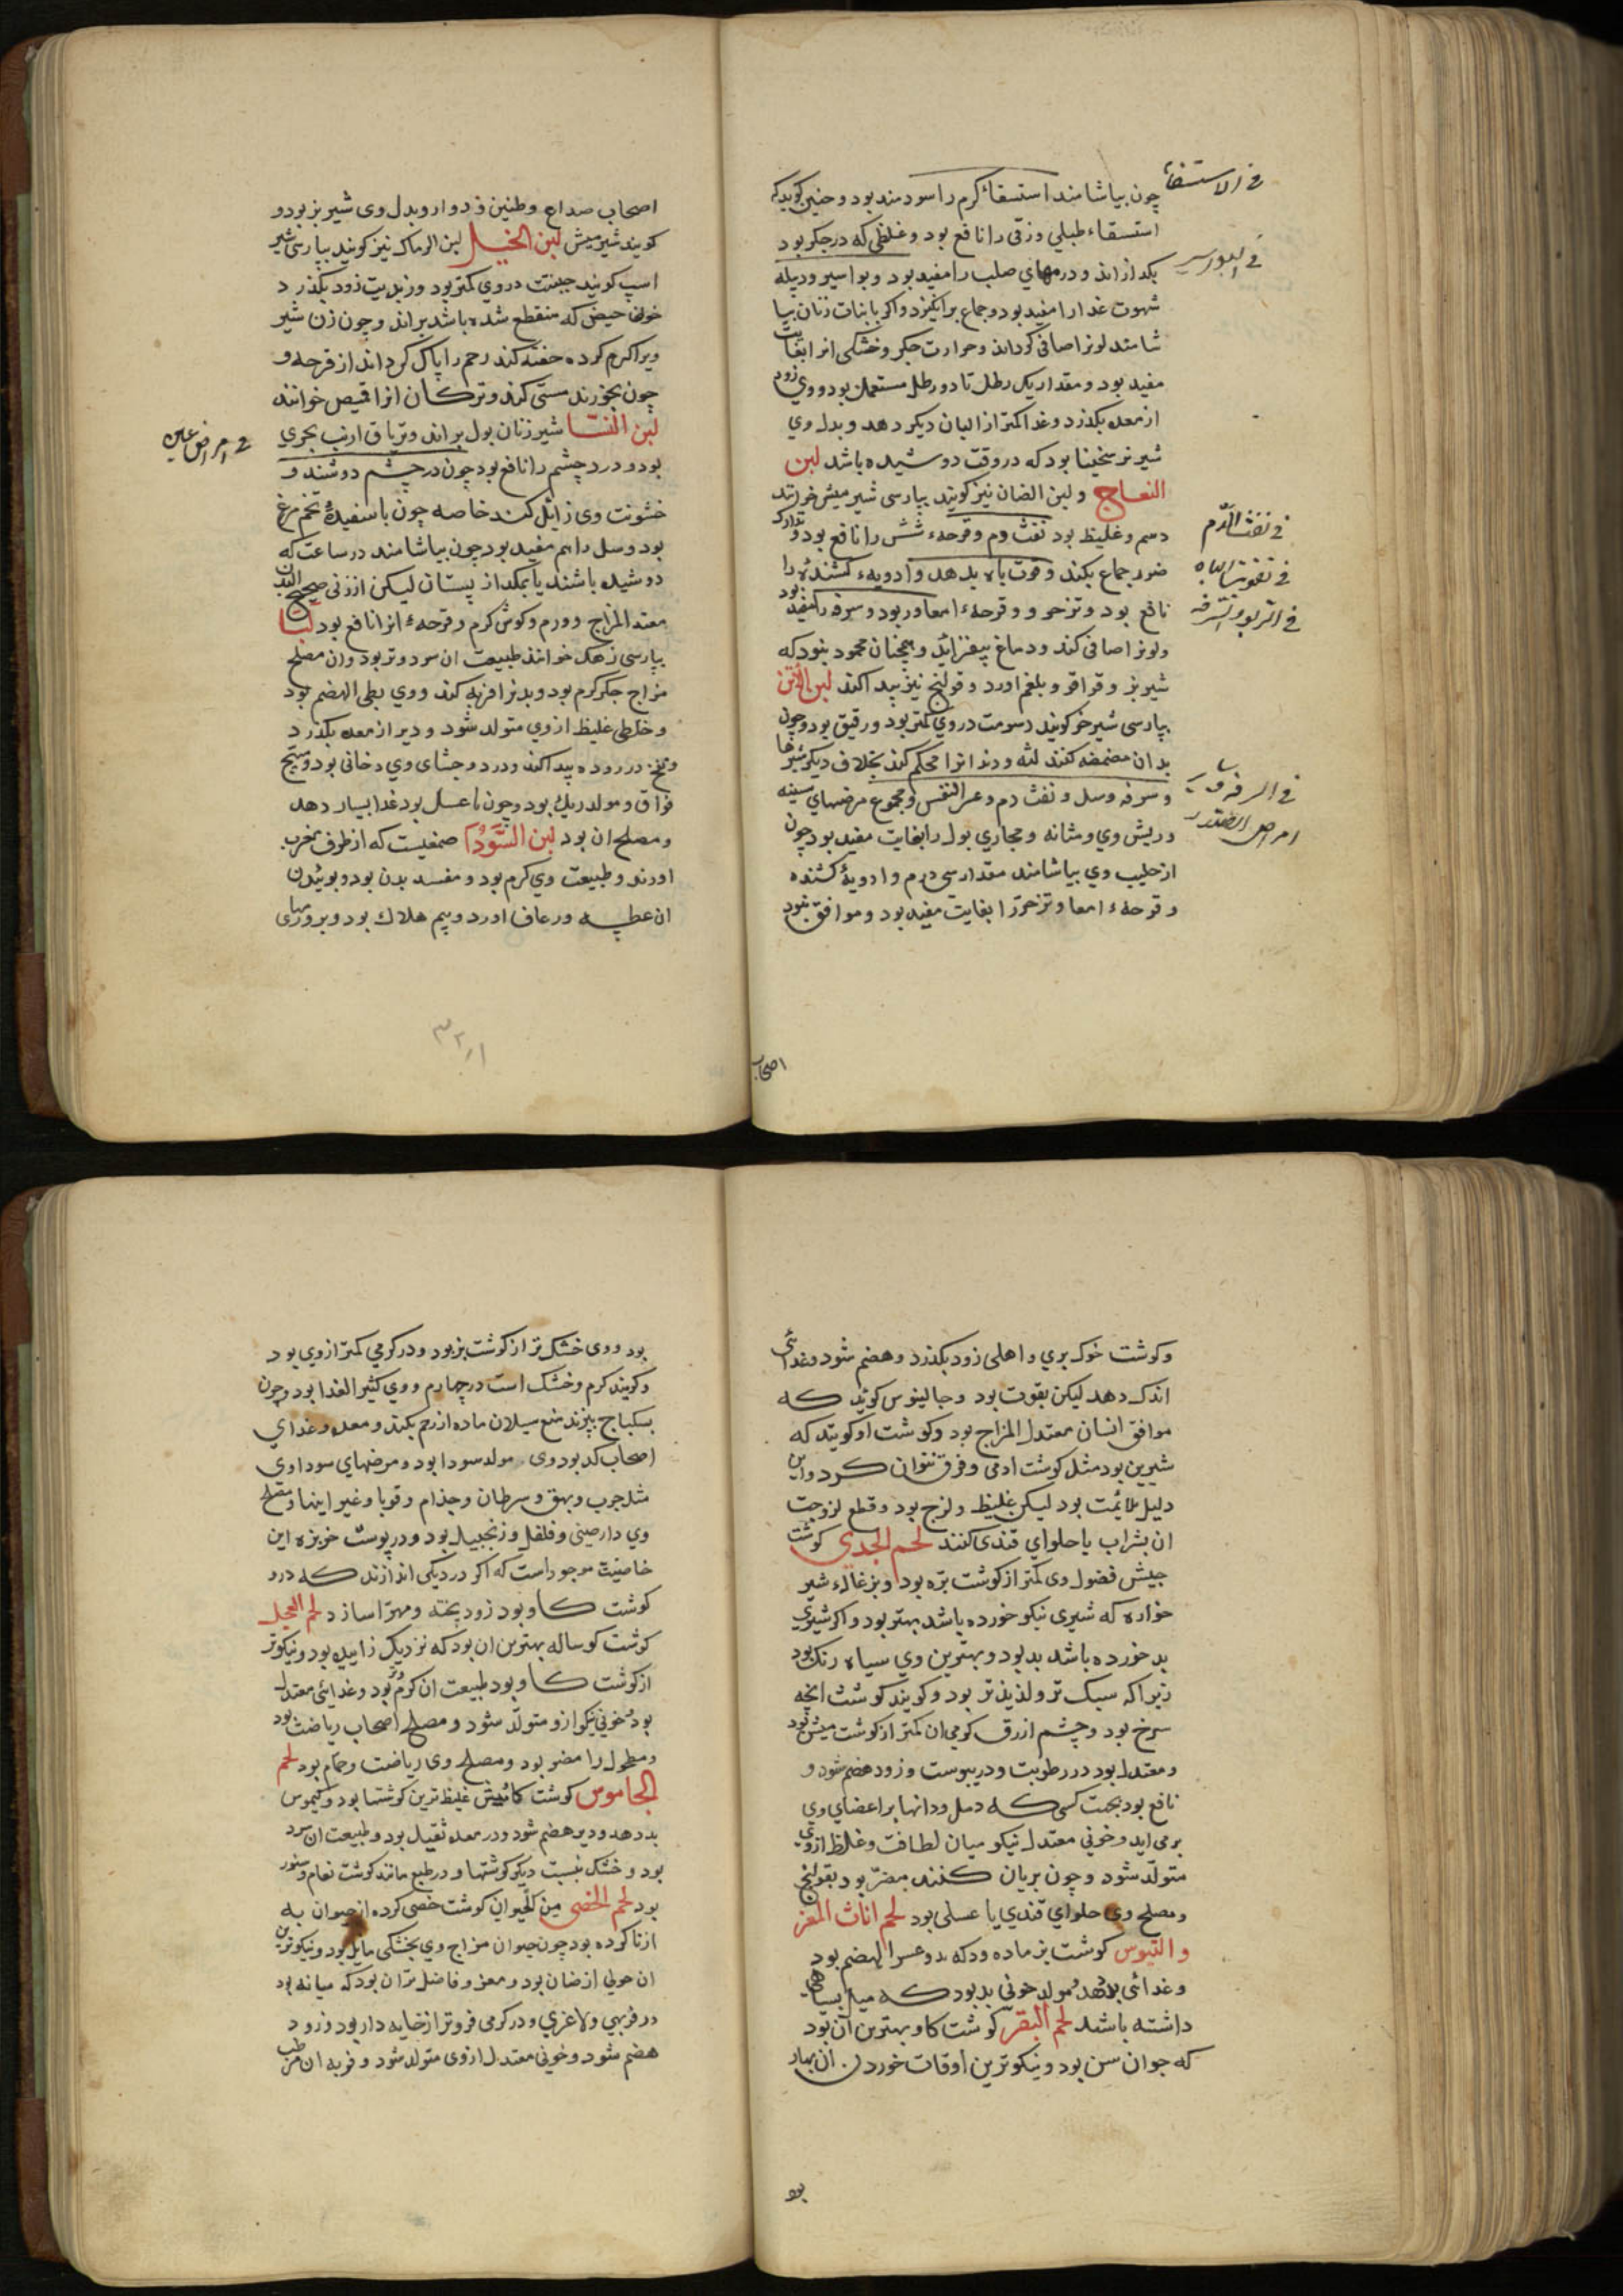 چون بیاشامند استسقاء کرم را سودمند بود و حنین کوید که
استسقاء طبلی و زقی را نافع بود و غلظی که در جکر بود
بکدازاند و درمهای صلب را مفید بود و بواسیر و دبیله
شهوت غدا را مفید بود و جماع برانکیزد و اکر با نبات زنان بیا
شامند لونرا صافی کرداند و حرارت جکر و خشکی انرا بغایت
مفید بود و مقدار یک رطل تا دو رطل مستعمل بود و وی زود
از معده بکذرد و غدا کمتر از البان دیکر دهد و بدل وی
شیر بز سخینا بود که در وقت دوشیده باشد لبن
النعاج و لبن الضان نیز کویند بپارسی شیر میش خوانند
دسم و غلیظ بود نفث دم و قرحهء شش را نافع بود و تدارک
ضرر جماع بکند و قوت باه بدهد و ادویهء کشنده را
نافع بود و تزحر و قرحهء امعا و ربو و سرفه را مفید بود
و لونرا صافی کند و دماغ بیفزاید و همچنان محمود نبود که
شیر بز و قراقر و بلغم اورد و قولنج نیز پیدا کند لبن الأتن
بپارسی شیر خر کویند دسومت در وی کمتر بود و رقیق بود و چون
بدان مضمضه کنند لثه و دندانرا محکم کند بخلاف دیکر شیرها
و سرفه و سل و نفث دم و عسر النفس و مجموع مرضهای سینه
و ریش وی و مثانه و مجاری بول را بغایت مفید بود چون
از حلیب وی بیاشامند مقدار سی درم و ادویهٔ کشنده
و قرحهء امعا و تزحررا بغایت مفید بود و موافق نبود
فی الاستسقاء
فی البواسیر
فی نفث الدم
فی تقویت الباه
فی الربو و السرفه
امراض الصدر
اصحاب
اصحاب صداع و طنین و دوار و بدل وی شیر بز بود و
کویند شیر میش لبن الخیل لبن الرماک نیز کویند بپارسی شیر
اسپ کویند جبنیت در وی کمتر بود و زبدیت زود بکذرد
خون حیض که منقطع شده باشد براند و چون زن شیر
ویرا کرم کرده حقنه کند رحم را پاک کرداند از قرحه و
چون بخورند مستی کند و ترکان انرا قمیص خوانند
لبن النسا شیر زنان بول براند و تریاق ارنب بحری
بود و درد چشم را نافع بود چون در چشم دوشند و
خشونت وی زایل کند خاصه چون با سفیدهٔ تخم مرغ
بود و سل را هم مفید بود چون بیاشامند در ساعت که
دوشیده باشند یا بمکد از پستان لیکن از زنی صحیح البدن
معتدل المزاج و ورم و کوش کرم و قرحهء انرا نافع بود لبأ
بپارسی زهک خوانند طبیعت ان سرد و تر بود و ان مصلح
مزاج جکر کرم بود و بدنرا فربه کند و وی بطی الهضم بود
و خلطی غلیظ از وی متولد شود و دیر از معده بکذرد
و نفخ در روده پیدا کند و درد و جشای وی دخانی بود و مهیج
فواق و مولد ریک بود و چون با عسل بود غدا بسیار دهد
و مصلح ان بود لبن السودا صمغیست که از طرف مغرب
اورند و طبیعت وی کرم بود و مفسد بدن بود و بوئیدن
ان عطسه و رعاف اورد و بیم هلاک بود و
فی امراض عین
و کوشت خوک بری و اهلی زود بکذرد و هضم شود و غدائی
اندک دهد لیکن بقوت بود و جالینوس کوید که
موافق انسان معتدل المزاج بود و کوشت او کویند که
شیرین بود مثل کوشت ادمی و فرق نتوان کرد و این
دلیل ملائمت بود لیکن غلیظ و لزج بود و قطع لزوجت
ان بشراب یا حلوای قندی کنند لحم الجدی کوشت
جیش فضول وی کمتر از کوشت بره بود و بزغالهء شیر
خواره که شیری نیکو خورده باشد بهتر بود و اکر شیری
بد خورده باشد بد بود و بهترین وی سیاه رنک بود
زیرا که سبک تر و لذیذ تر بود و کویند کوشت انچه
سرخ بود و چشم ازرق کرمی ان کمتر از کوشت میش بود
و معتدل بود در رطوبت و در یبوست و زود هضم شود و
نافع بود بجهت کسی که دمل و دانها بر اعضای وی
برمی اید و خونی معتدل نیکو میان لطافت و غلظ از وی
متولد شود و چون بریان کنند مضر بود بقولنج
و مصلح وی حلوای قندی یا عسلی بود لحم اناث المعز
و التیوس کوشت بز ماده و دکه بد و عسر الهضم بود
و غدائی بد دهد و مولد خونی بد بود که میل بسیاهی
داشته باشد لحم البقر کوشت کاو بهترین آن بود
که جوان سن بود و نیکوترین اوقات خوردن ان بهار
بود
بود و وی خشک تر از کوشت بز بود و در کرمی کمتر از وی بود
و کویند کرم و خشک است در چهارم و وی کثیر الغدا بود و چون
بسکباج بپزند منع سیلان ماده از رحم بکند و معده و غدای
اصحاب کد بود وی مولد سودا بود و مرضهای سوداوی
مثل جرب و بهق و سرطان و جذام و قوبا و غیر اینها و مصلح
وی دارصینی و فلفل و زنجبیل بود و در پوست خربزه این
خاصیت موجود است که اکر در دیکی اندازند که درو
کوشت کاو بود زود پخته و مهرا سازد لحم العجل
کوشت کوساله بهترین ان بود که نزدیک زاییده بود و نیکوتر
از کوشت کاو بود طبیعت ان کرم و تر بود و غدائی معتدل
بود و خونی نیکو ازو متولد شود و مصلح اصحاب ریاضت بود
و مطحول را مضر بود و مصلح وی ریاضت و حمام بود لحم
الجاموس کوشت کامیش غلیظ ترین کوشتها بود و کیموس
بد دهد و دیر هضم شود و در معده ثقیل بود و طبیعت ان سرد
بود و خشک بنسبت دیکر کوشتها و در طبع مانند کوشت نعام و نسور
بود لحم الخصی من کل حیوان کوشت خصی کرده از حیوان به
ازنا کرده بود چون حیوان مزاج وی بخشکی مایل بود و نیکوترین
ان حولی از ضان بود و معز و فاضل تر ان بود که میانه بود
در فربهی و لاغری و در کرمی فروتر از خایه دار بود و زود
هضم شود و خونی معتدل از وی متولد شود و فربه ان مرطب